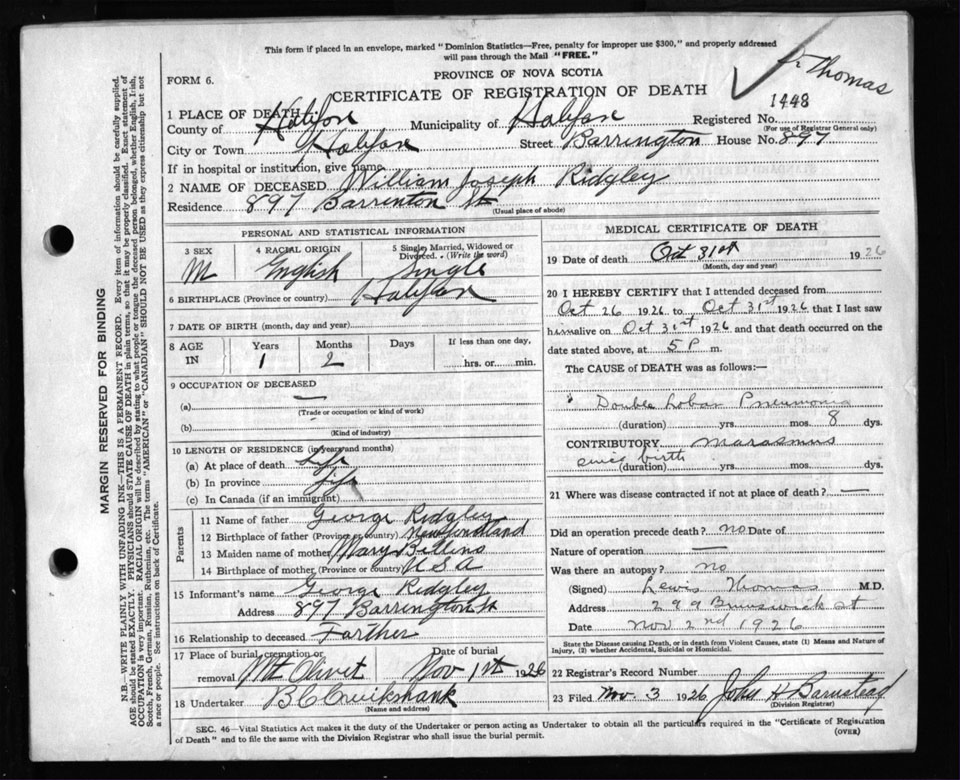 This form if placed in an envelope, marked "Dominion Statistics—Free, penalty for improper use $300," and properly addressed
will pass through the Mail "FREE."
FORM 6.
PROVINCE OF NOVA SCOTIA
Dr Thomas
CERTIFICATE OF REGISTRATION OF DEATH
1448
1 PLACE OF DEATH
County of Halifax Municipality of Halifax Registered No.
(For use of Registrar General only)
City or Town Halifax Street Barrington House No. 897
If in hospital or institution, give name
2 NAME OF DECEASED William Joseph Ridgley
Residence 897 Barrinton St
(Usual place of abode)
PERSONAL AND STATISTICAL INFORMATION
3 SEX M
4 RACIAL ORIGIN English
5 Single, Married, Widowed or Divorced. (Write the word) Single
6 BIRTHPLACE (Province or country) Halifax
7 DATE OF BIRTH (month, day and year)
8 AGE IN Years 1 Months 2 Days If less than one day, hrs. or min.
9 OCCUPATION OF DECEASED
(a) —
(Trade or occupation or kind of work)
(b)
(Kind of industry)
10 LENGTH OF RESIDENCE (in years and months)
(a) At place of death Life
(b) In province Life
(c) In Canada (if an immigrant)
Parents
11 Name of father George Ridgley
12 Birthplace of father (Province or country) Newfoundland
13 Maiden name of mother Mary Billins
14 Birthplace of mother (Province or country) U S A
15 Informant's name George Ridgley
Address 897 Barrington St
16 Relationship to deceased Farther
17 Place of burial, cremation or removal Mt Olivet
Date of burial Nov 1st 1926
18 Undertaker B C Cruikshank
(Name and address)
MEDICAL CERTIFICATE OF DEATH
19 Date of death Oct 31st 1926
(Month, day and year)
20 I HEREBY CERTIFY that I attended deceased from
Oct 26 1926 to Oct 31st 1926 that I last saw
him alive on Oct 31st 1926 and that death occurred on the
date stated above, at 5 P m.
The CAUSE of DEATH was as follows:—
Double Lobar Pneumonia
(duration) yrs. mos. 8 dys.
CONTRIBUTORY marasmus
since birth
(duration) yrs. mos. dys.
21 Where was disease contracted if not at place of death? —
Did an operation precede death? no Date of
Nature of operation —
Was there an autopsy? no
(Signed) Lewis Thomas M.D.
Address 299 Brunswick st
Date Nov 2nd 1926
State the Disease causing Death, or in Death from Violent Causes, state (1) Means and Nature of
Injury, (2) whether Accidental, Suicidal or Homicidal.
22 Registrar's Record Number
23 Filed Nov. 3 1926 John H Barnstead
(Division Registrar)
SEC. 46—Vital Statistics Act makes it the duty of the Undertaker or person acting as Undertaker to obtain all the particulars required in the "Certificate of Registration
of Death" and to file the same with the Division Registrar who shall issue the burial permit.
(OVER)
MARGIN RESERVED FOR BINDING
N.B.—WRITE PLAINLY WITH UNFADING INK—THIS IS A PERMANENT RECORD. Every item of information should be carefully supplied.
AGE should be stated EXACTLY. PHYSICIANS should STATE CAUSE OF DEATH in plain terms, so that it may be properly classified. Exact statement of
OCCUPATION is very important. RACIAL ORIGIN will be described by stating to what people or tongue the deceased person belonged, whether English, Irish,
Scotch, French, German, Russian, Ruthenian, etc. The terms "AMERICAN" or "CANADIAN" SHOULD NOT BE USED as they express citizenship but not
a race or people. See instructions on back of Certificate.